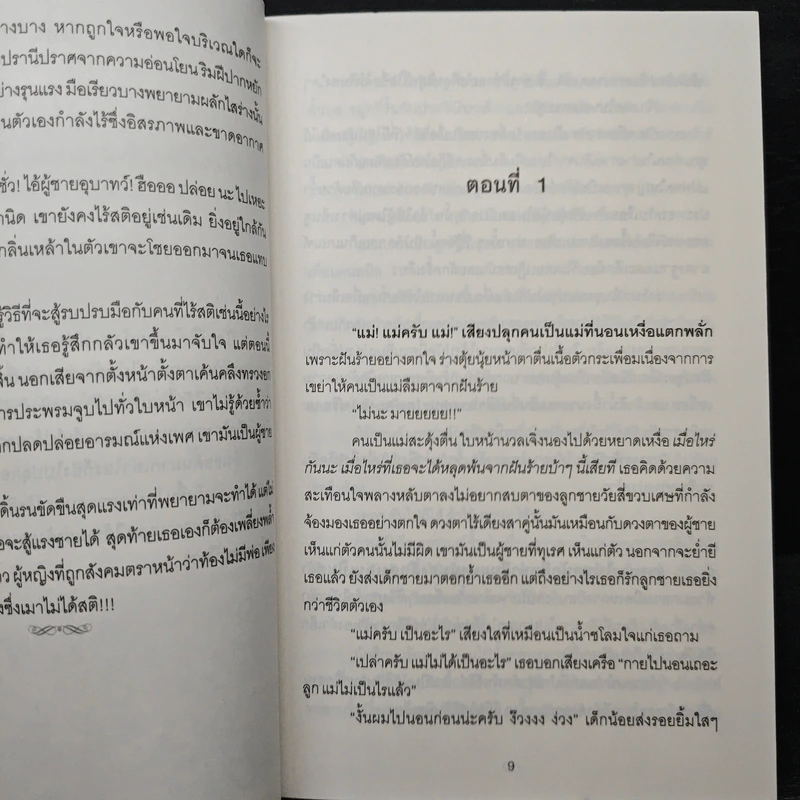 างบาง หากถูกใจหรือพอใจบริเวณใดก็จะ
ปรานีปราศจากความอ่อนโยน ริมฝีปากหยัก
ย่างรุนแรง มือเรียวบางพยายามผลักไสร่างนั้น
นตัวเองกำลังไร้ซึ่งอิสรภาพและขาดอากาศ
ชั่ว! ไอ้ผู้ชายอุบาทว์! ฮือออ ปล่อย นะ ไปเหอะ
านิด เขายังคงไร้สติอยู่เช่นเดิม ยิ่งอยู่ใกล้กัน
กลิ่นเหล้าในตัวเขาจะโชยออกมาจนเธอแทบ
รู้วิธีที่จะสู้รบปรบมือกับคนที่ไร้สติเช่นนี้อย่างไร
ทำให้เธอรู้สึกกลัวเขาขึ้นมาจับใจ แต่ตอนนี้
ลิ้น นอกเสียจากตั้งหน้าตั้งตาเค้นคลึงทรวงอก
การประพรมจูบไปทั่วใบหน้า เขาไม่รู้ด้วยซ้ำว่า
กปลดปล่อยอารมณ์แห่งเพศ เขามันเป็นผู้ชาย
ดิ้นรนขัดขืนสุดแรงเท่าที่พยายามจะทำได้ แต่ไม่
อจะสู้แรงชายได้ สุดท้ายเธอเองก็ต้องเพลี่ยงพล้ำ
ว ผู้หญิงที่ถูกสังคมตราหน้าว่าท้องไม่มีพ่อ เพียง
งซึ่งเมาไม่ได้สติ!!!
ตอนที่ 1
“แม่! แม่ครับ แม่!” เสียงปลุกคนเป็นแม่ที่นอนเหงื่อแตกพลั่ก
เพราะฝันร้ายอย่างตกใจ ร่างตุ้ยนุ้ยหน้าตาตื่นเนื้อตัวกระเพื่อมเนื่องจากการ
เขย่าให้คนเป็นแม่ลืมตาจากฝันร้าย
“ไม่นะ มายยยยย!!”
คนเป็นแม่สะดุ้งตื่น ใบหน้านวลเจิ่งนองไปด้วยหยาดเหงื่อ เมื่อไหร่
กันนะ เมื่อไหร่ที่เธอจะได้หลุดพ้นจากฝันร้ายบ้าๆ นี้เสียที เธอคิดด้วยความ
สะเทือนใจพลางหลับตาลงไม่อยากสบตาของลูกชายวัยสี่ขวบเศษที่กำลัง
จ้องมองเธออย่างตกใจ ดวงตาไร้เดียงสาคู่นั้นมันเหมือนกับดวงตาของผู้ชาย
เห็นแก่ตัวคนนั้นไม่มีผิด เขามันเป็นผู้ชายที่ทุเรศ เห็นแก่ตัว นอกจากจะย่ำยี
เธอแล้ว ยังส่งเด็กชายมาตอกย้ำเธออีก แต่ถึงอย่างไรเธอก็รักลูกชายเธอยิ่ง
กว่าชีวิตตัวเอง
“แม่ครับ เป็นอะไร” เสียงใสที่เหมือนเป็นน้ำชโลมใจแก่เธอถาม
“เปล่าครับ แม่ไม่ได้เป็นอะไร” เธอบอกเสียงเครือ “กายไปนอนเถอะ
ลูก แม่ไม่เป็นไรแล้ว”
“งั้นผมไปนอนก่อนน่ะครับ ง๊วงงง ง่วง” เด็กน้อยส่งรอยยิ้มใสๆ
9